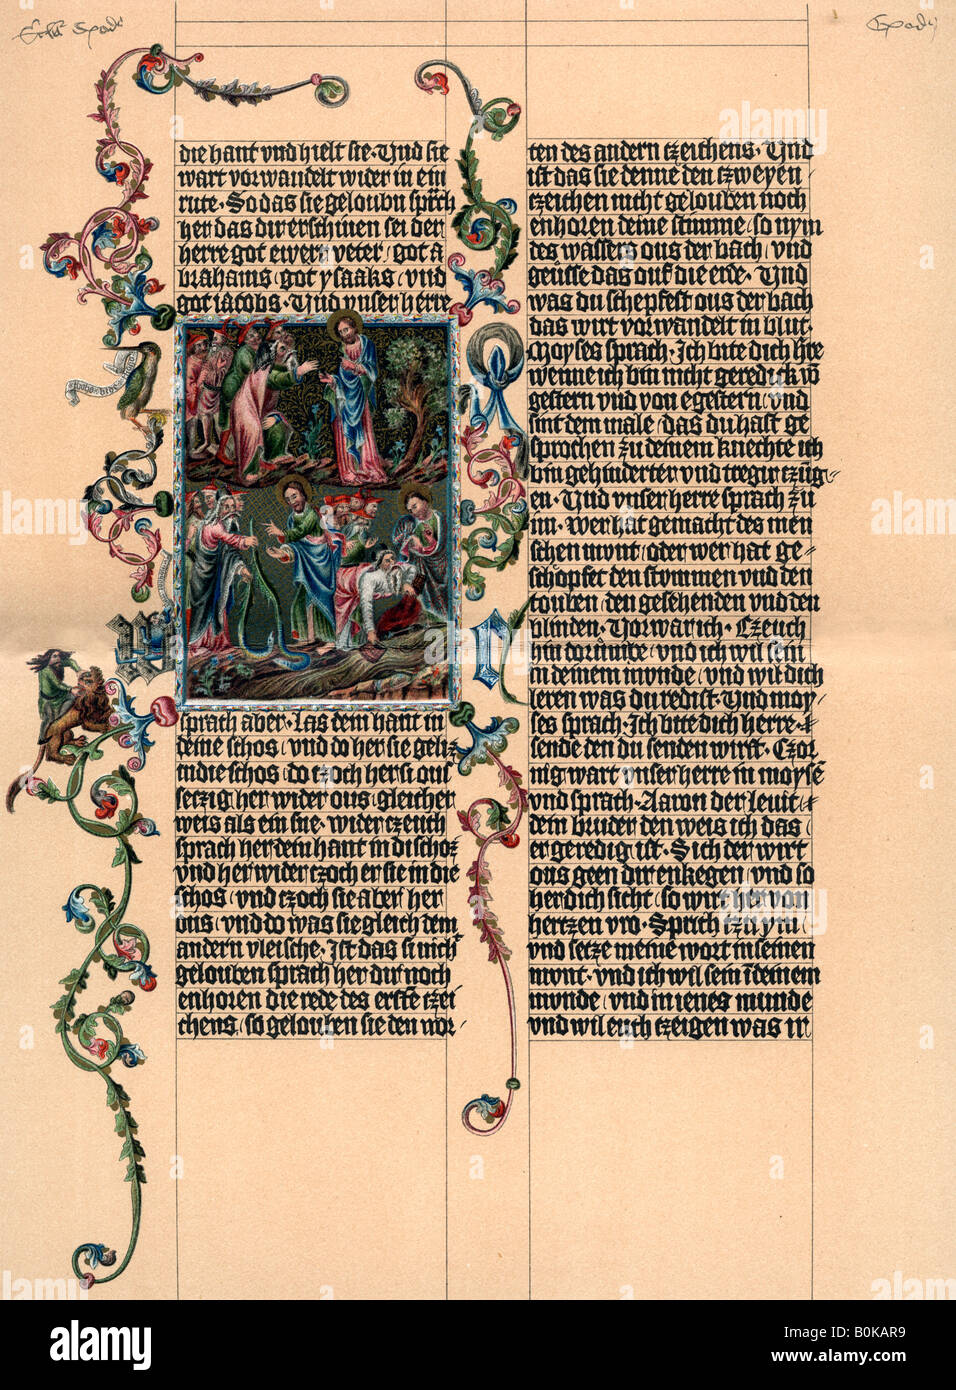 die hant vnd hielt sie· Vnd sie
wart vorwandelt wider in ein
rute· So das sie geloubn sprach
her das dir erschinen sei der
herre got ewern veter/ got a
brahams/ got ysaaks/ vnd
got jacobs· Vnd vnser herre
sprach aber· Las dem hant in
deine schos/ vnd do her sie
in die schos/ do czoch her si ous
seczig/ her wider ous/ gleicher
weis als ein sne· wider czeuch
sprach her dem hant in di schoz
vnd her wider czoch er sie in die
schos/ vnd czoch sie aber her
ous/ vnd do was sie gleich dem
andern vleische· Ist das si nicht
gelouben sprach her dir noch
enhoren die rede des ersten czei
chens/ so gelouben sie den wor-
ten des andern czeichens· Vnd
ist das sie denne den czweyen
czeichen nicht gelouben noch
enhoren deine stimme/ so nym
des wassers ous der bach/ vnd
geusse das ouf die erde· Vnd
was du schepfest ous der bach
das wirt vorwandelt in blut·
Moyses sprach· Ich bite dich
wenne ich bin nicht geredick
gestern vnd von egestern/ vnd
sint dem male/ das du hast ge
sprochen zu deinem knechte ich
bin gehinderter vnd treger
en· Vnd vnser herre sprach zu
im· Wer hat gemacht des men
schen mont/ oder wer hat ge=
schopfet den stommen vnd den
touben/ den gesehenden vnd den
blinden· Vorwar ich· Czeuch
hin dorumbe/ vnd ich wil sein
in deinem monde/ vnd wil dich
leren was du redist· Vnd moy=
ses sprach· Ich bite dich herre·
sende den du senden wirst· Czor
nig wart vnser herre in moysen
vnd sprach· Aaron der leuit
dein bruder den weis ich das
er geredig ist· Sich der wirt
ous geen dir enkegen/ vnd so
her dich sicht/ so wirt her von
hertzen vro· Sprich czu ym/
vnd setze meine wort in seinen
mont· vnd ich wil sein in deinem
monde/ vnd in jenes munde
vnd wil euch czeigen was ir
alamy
Image ID: B0KAR9
www.alamy.com